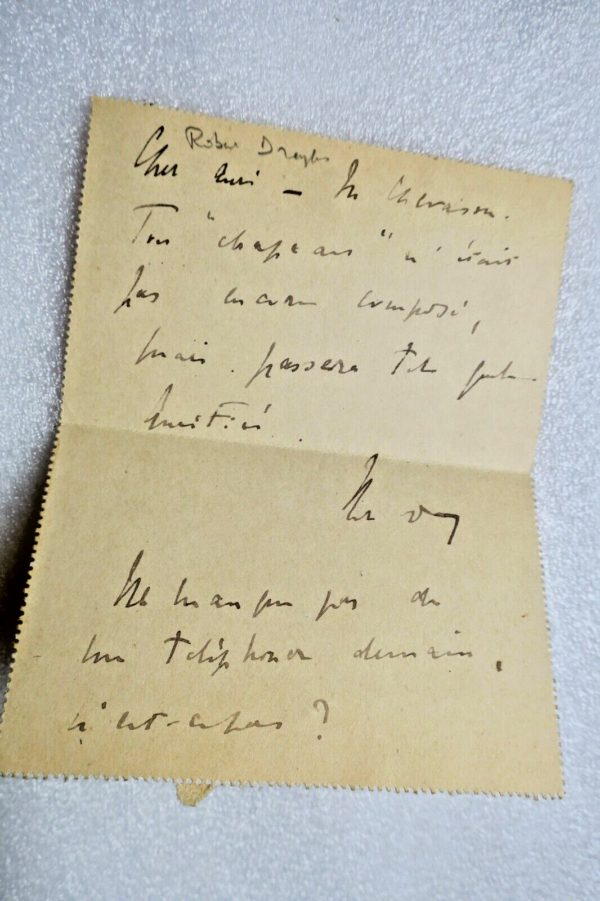 Robert Dreyfus
Cher ami —
Ton "chapeau" n'était
pas encore composé,
mais passera
amitié.
Ne manque pas de
me téléphoner demain,
n'est-ce pas ?